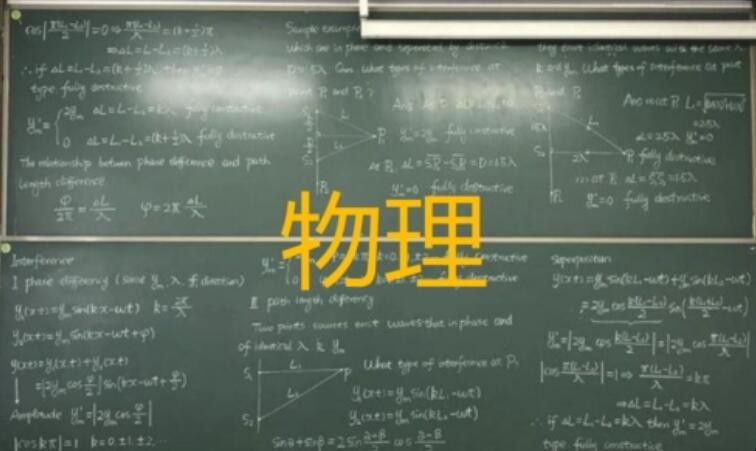 cos|π(L₁-L₂)/λ|=0 ⇒ π(L₁-L₂)/λ=(k+½)π
⇒ΔL=L₁-L₂=(k+½)λ
∴ if ΔL=L₁-L₂=(k+½)λ then
type fully destructive
y'm={2ym ΔL=L₁-L₂=kλ fully constructive
0 ΔL=L₁-L₂=(k+½)λ fully destructive
The relationship between phase difference and path
length difference
φ/2π=ΔL/λ φ=2π ΔL/λ
Sample example
which are in phase and separated by distance
D=1.5λ Que. What types of interference at
point P₁ and P₂?
L₁
L₂
S₂
P₁
P₂
y'm=2ym fully constructive
At P₂ ΔL=S₁P₂-S₂P₂=D=1.5λ
y'm=0 fully destructive
they emit identical waves with the same λ
k and ym. What types of interference at point
P₁ and P₂
=2.5λ
ΔL=0.5λ y'm=0
S₂ 2λ P₁ fully destructive
(2) at P₂ ΔL=S₁S₂=1.5λ
P₂
y'm=0 fully destructive
物理
Interference
I phase differency (same ym λ direction)
y₁(x+)=ym sin(kx-wt) k=2π/λ
y₂(x+)=ym sin(kx-wt+φ)
y(x+)=y₁(x+)+y₂(x+)
=|2ym cos φ/2| sin(kx-wt+φ/2)
Amplitude y'm=|2ym cos φ/2|
|cos kπ|=1 k=0,±1,±2...
fully constructive
fully destructive
II path length differency
Two points sources emit waves that in phase and
of identical λ k ym
S₁ L₁ P
L₂
S₂
What type of interference at P?
y₁(x+)=ym sin(kL₁-wt)
y₂(x+)=ym sin(kL₂-wt)
sinα+sinβ=2sin α+β/2 cos α-β/2
Superposition
y(x+)=ym sin(kL₁-wt)+ym sin(kL₂-wt)
=2ym cos k(L₁-L₂)/2 sin(k(L₁+L₂)/2-wt)
y'm=|2ym cos k(L₁-L₂)/2|=|2ym cos π(L₁-L₂)/λ|
|cos π(L₁-L₂)/λ|=1⇒π(L₁-L₂)/λ=kπ
⇒ΔL=L₁-L₂=kλ
∴ if ΔL=L₁-L₂=kλ then y'm=2ym
type. fully constructive